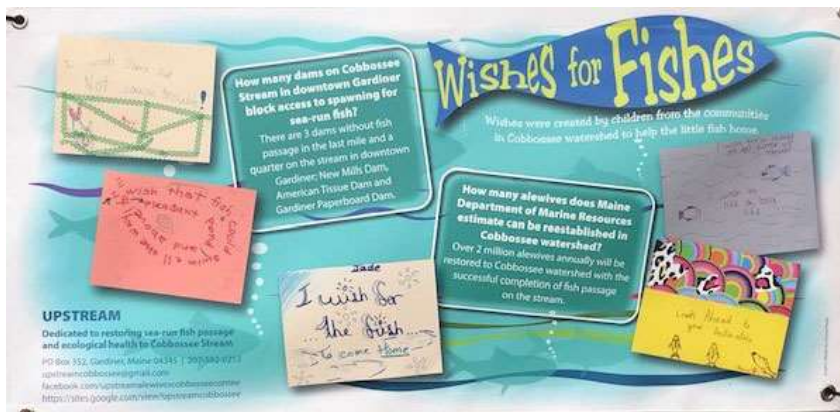 Wishes for Fishes
Wishes were created by children from the communities
in Cobbossee watershed to help the little fish home.
How many dams on Cobbossee
Stream in downtown Gardiner
block access to spawning for
sea-run fish?
There are 3 dams without fish
passage in the last mile and a
quarter on the stream in downtown
Gardiner; New Mills Dam,
American Tissue Dam and
Gardiner Paperboard Dam.
How many alewives does Maine
Department of Marine Resources
estimate can be reestablished in
Cobbossee watershed?
Over 2 million alewives annually will be
restored to Cobbossee watershed with the
successful completion of fish passage
on the stream.
NOT
I wish that fish could
Jade
I wish for
the fish...
to come Home
UPSTREAM
Dedicated to restoring sea-run fish passage
and ecological health to Cobbossee Stream
PO Box 352, Gardiner, Maine 04345
upstreamcobbossee@gmail.com
https://sites.google.com/view/upstreamcobbossee